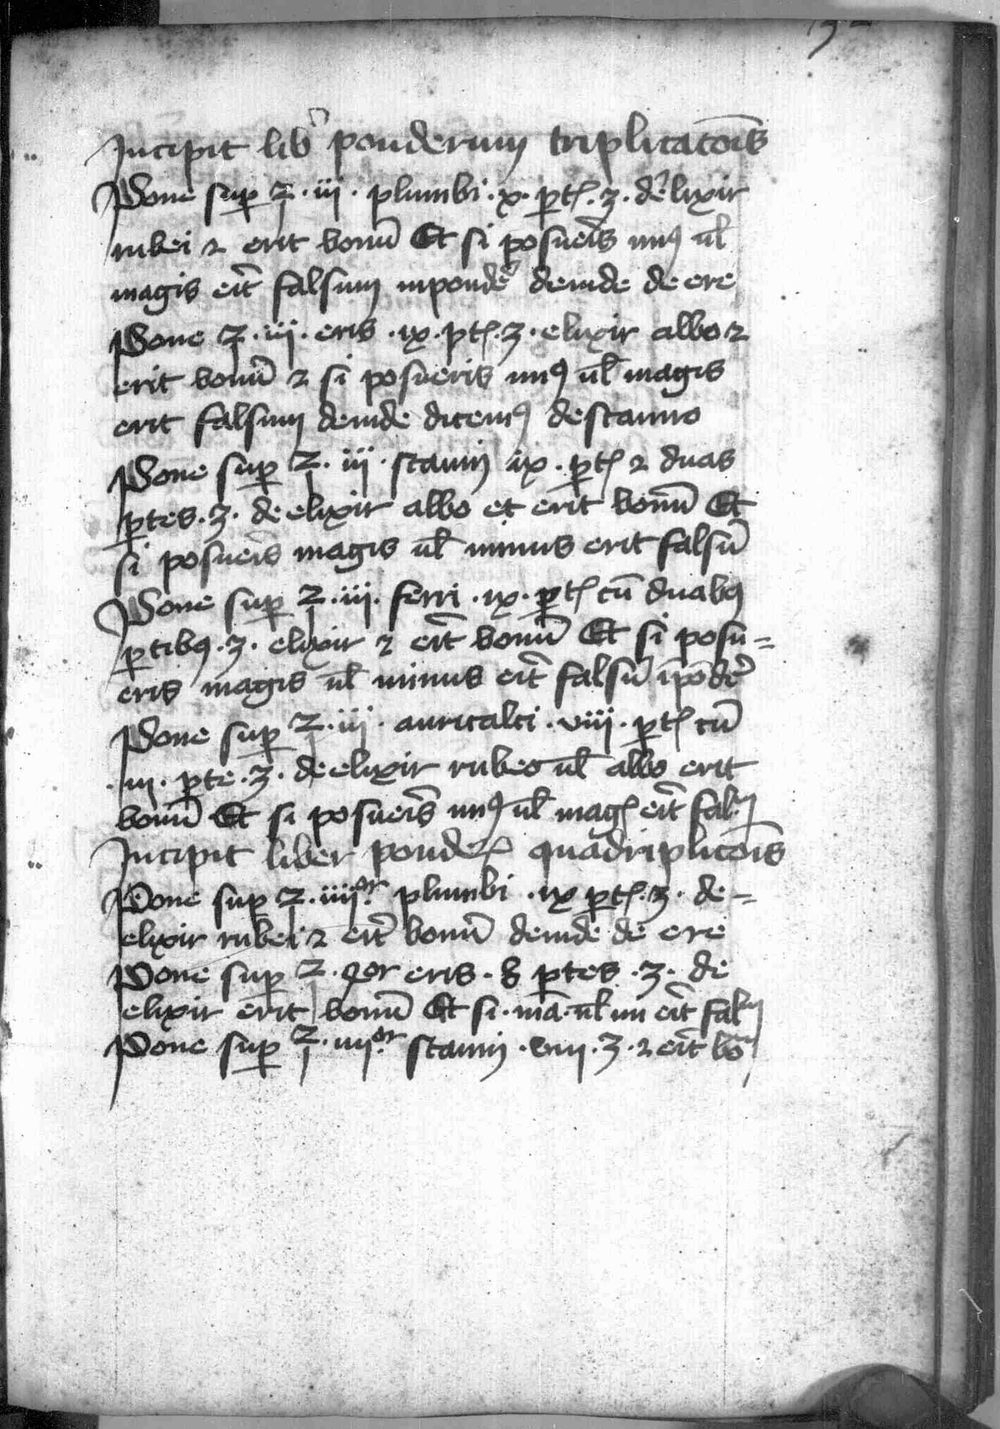 Incipit lib̾ ponderum triplicatōis
Pone suꝑ ℥ · iii · plumbi · x · ꝑtes · ʒ · delixir
rubei ⁊ erit bonū Et si posueris minꝰ ul̄
magis erit falsum in pondere deinde de ere
Pone ℥ · iii · eris · ix · ꝑtes · ʒ · elixir albo ⁊
erit bonū ⁊ si posueris minꝰ ul̄ magis
erit falsum deinde dicemꝰ de stanno
Pone suꝑ ℥ · iii · stanni ix · ꝑtes ⁊ duas
ꝑtes · ʒ · de elixir albo et erit bonū Et
si posueris magis ul̄ minus erit falsū
Pone suꝑ ℥ · iii · ferri · ix · ꝑtes cū duabꝰ
ꝑtibꝰ · ʒ · elixir ⁊ erit bonū Et si posu=
eris magis ul̄ minus erit falsū ī pōdere
Pone suꝑ ℥ · iii · auricalci · viii · ꝑtes cū
· iii · ꝑte · ʒ · de elixir rubeo ul̄ albo erit
bonū Et si posueris minꝰ ul̄ magis erit falm
Incipit liber ponderum quadriplicōis
Pone suꝑ ℥ · iiiior · plumbi · ix ꝑtes · ʒ · de=
elixir rubei ⁊ erit bonū deinde de ere
Pone suꝑ ℥ · qor eris · 8 ꝑtes · ʒ · de
elixir erit bonū Et si · ma · ul̄ mi erit falm
Pone suꝑ ℥ · iiiior stanni · viii · ʒ · ⁊ erit bōm